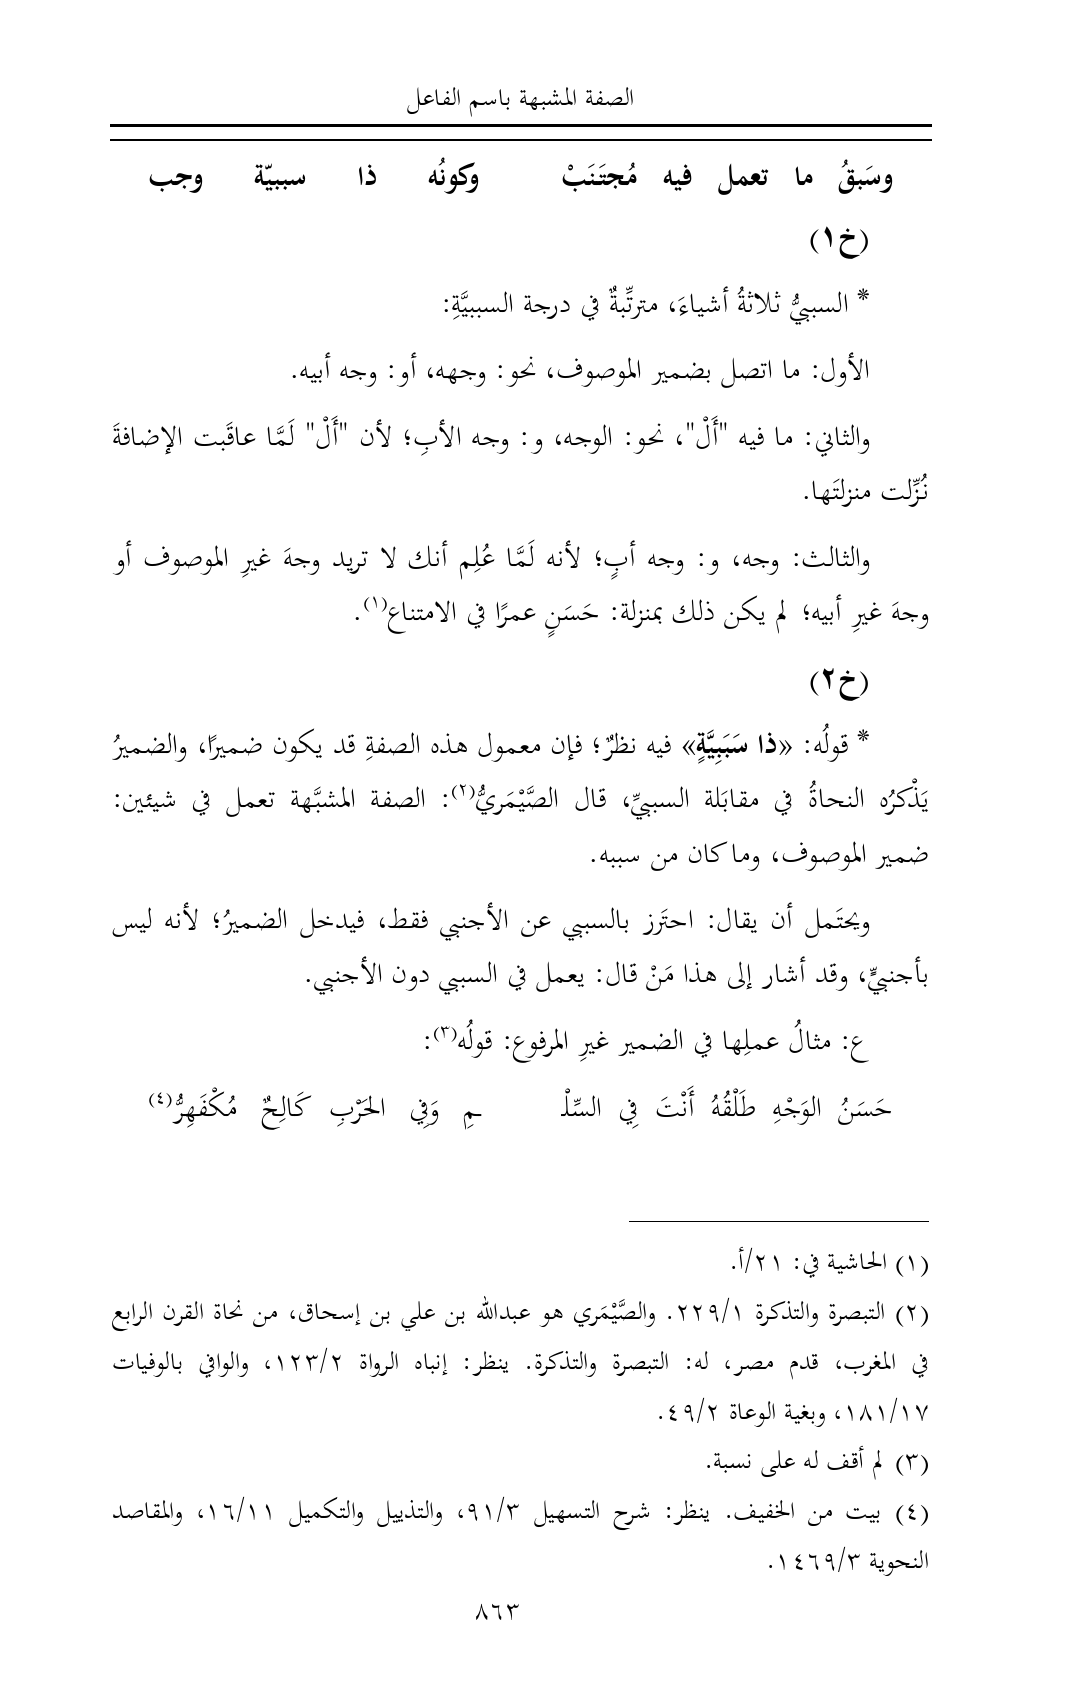 الصفة المشبهة باسم الفاعل
وسَبقُ ما تعمل فيه مُجتَنَبْ وكونُه ذا سببيّة وجب
(خ١)
* السببيُّ ثلاثةُ أشياءَ، مترتِّبةٌ في درجة السببيَّةِ:
الأول: ما اتصل بضمير الموصوف، نحو: وجهه، أو: وجه أبيه.
والثاني: ما فيه "أَلْ"، نحو: الوجه، و: وجه الأبِ؛ لأن "أَلْ" لَمَّا عاقَبت الإضافةَ
نُزِّلت منزلتَها.
والثالث: وجه، و: وجه أبٍ؛ لأنه لَمَّا عُلِم أنك لا تريد وجهَ غيرِ الموصوف أو
وجهَ غيرِ أبيه؛ لم يكن ذلك بمنزلة: حَسَنٍ عمرًا في الامتناع(١).
(خ٢)
* قولُه: «ذا سَبَبِيَّةٍ» فيه نظرٌ؛ فإن معمول هذه الصفةِ قد يكون ضميرًا، والضميرُ
يَذْكرُه النحاةُ في مقابَلة السببيِّ، قال الصَّيْمَريُّ(٢): الصفة المشبَّهة تعمل في شيئين:
ضمير الموصوف، وما كان من سببه.
ويحتَمل أن يقال: احتَرز بالسببي عن الأجنبي فقط، فيدخل الضميرُ؛ لأنه ليس
بأجنبيٍّ، وقد أشار إلى هذا مَنْ قال: يعمل في السببي دون الأجنبي.
ع: مثالُ عملِها في الضمير غيرِ المرفوع: قولُه(٣):
حَسَنُ الوَجْهِ طَلْقُهُ أَنْتَ فِي السِّلْـ ـمِ وَفِي الحَرْبِ كَالِحٌ مُكْفَهِرُّ(٤)
(١) الحاشية في: ٢١/أ.
(٢) التبصرة والتذكرة ٢٢٩/١. والصَّيْمَري هو عبدالله بن علي بن إسحاق، من نحاة القرن الرابع
في المغرب، قدم مصر، له: التبصرة والتذكرة. ينظر: إنباه الرواة ١٢٣/٢، والوافي بالوفيات
١٨١/١٧، وبغية الوعاة ٤٩/٢.
(٣) لم أقف له على نسبة.
(٤) بيت من الخفيف. ينظر: شرح التسهيل ٩١/٣، والتذييل والتكميل ١٦/١١، والمقاصد
النحوية ١٤٦٩/٣.
٨٦٣